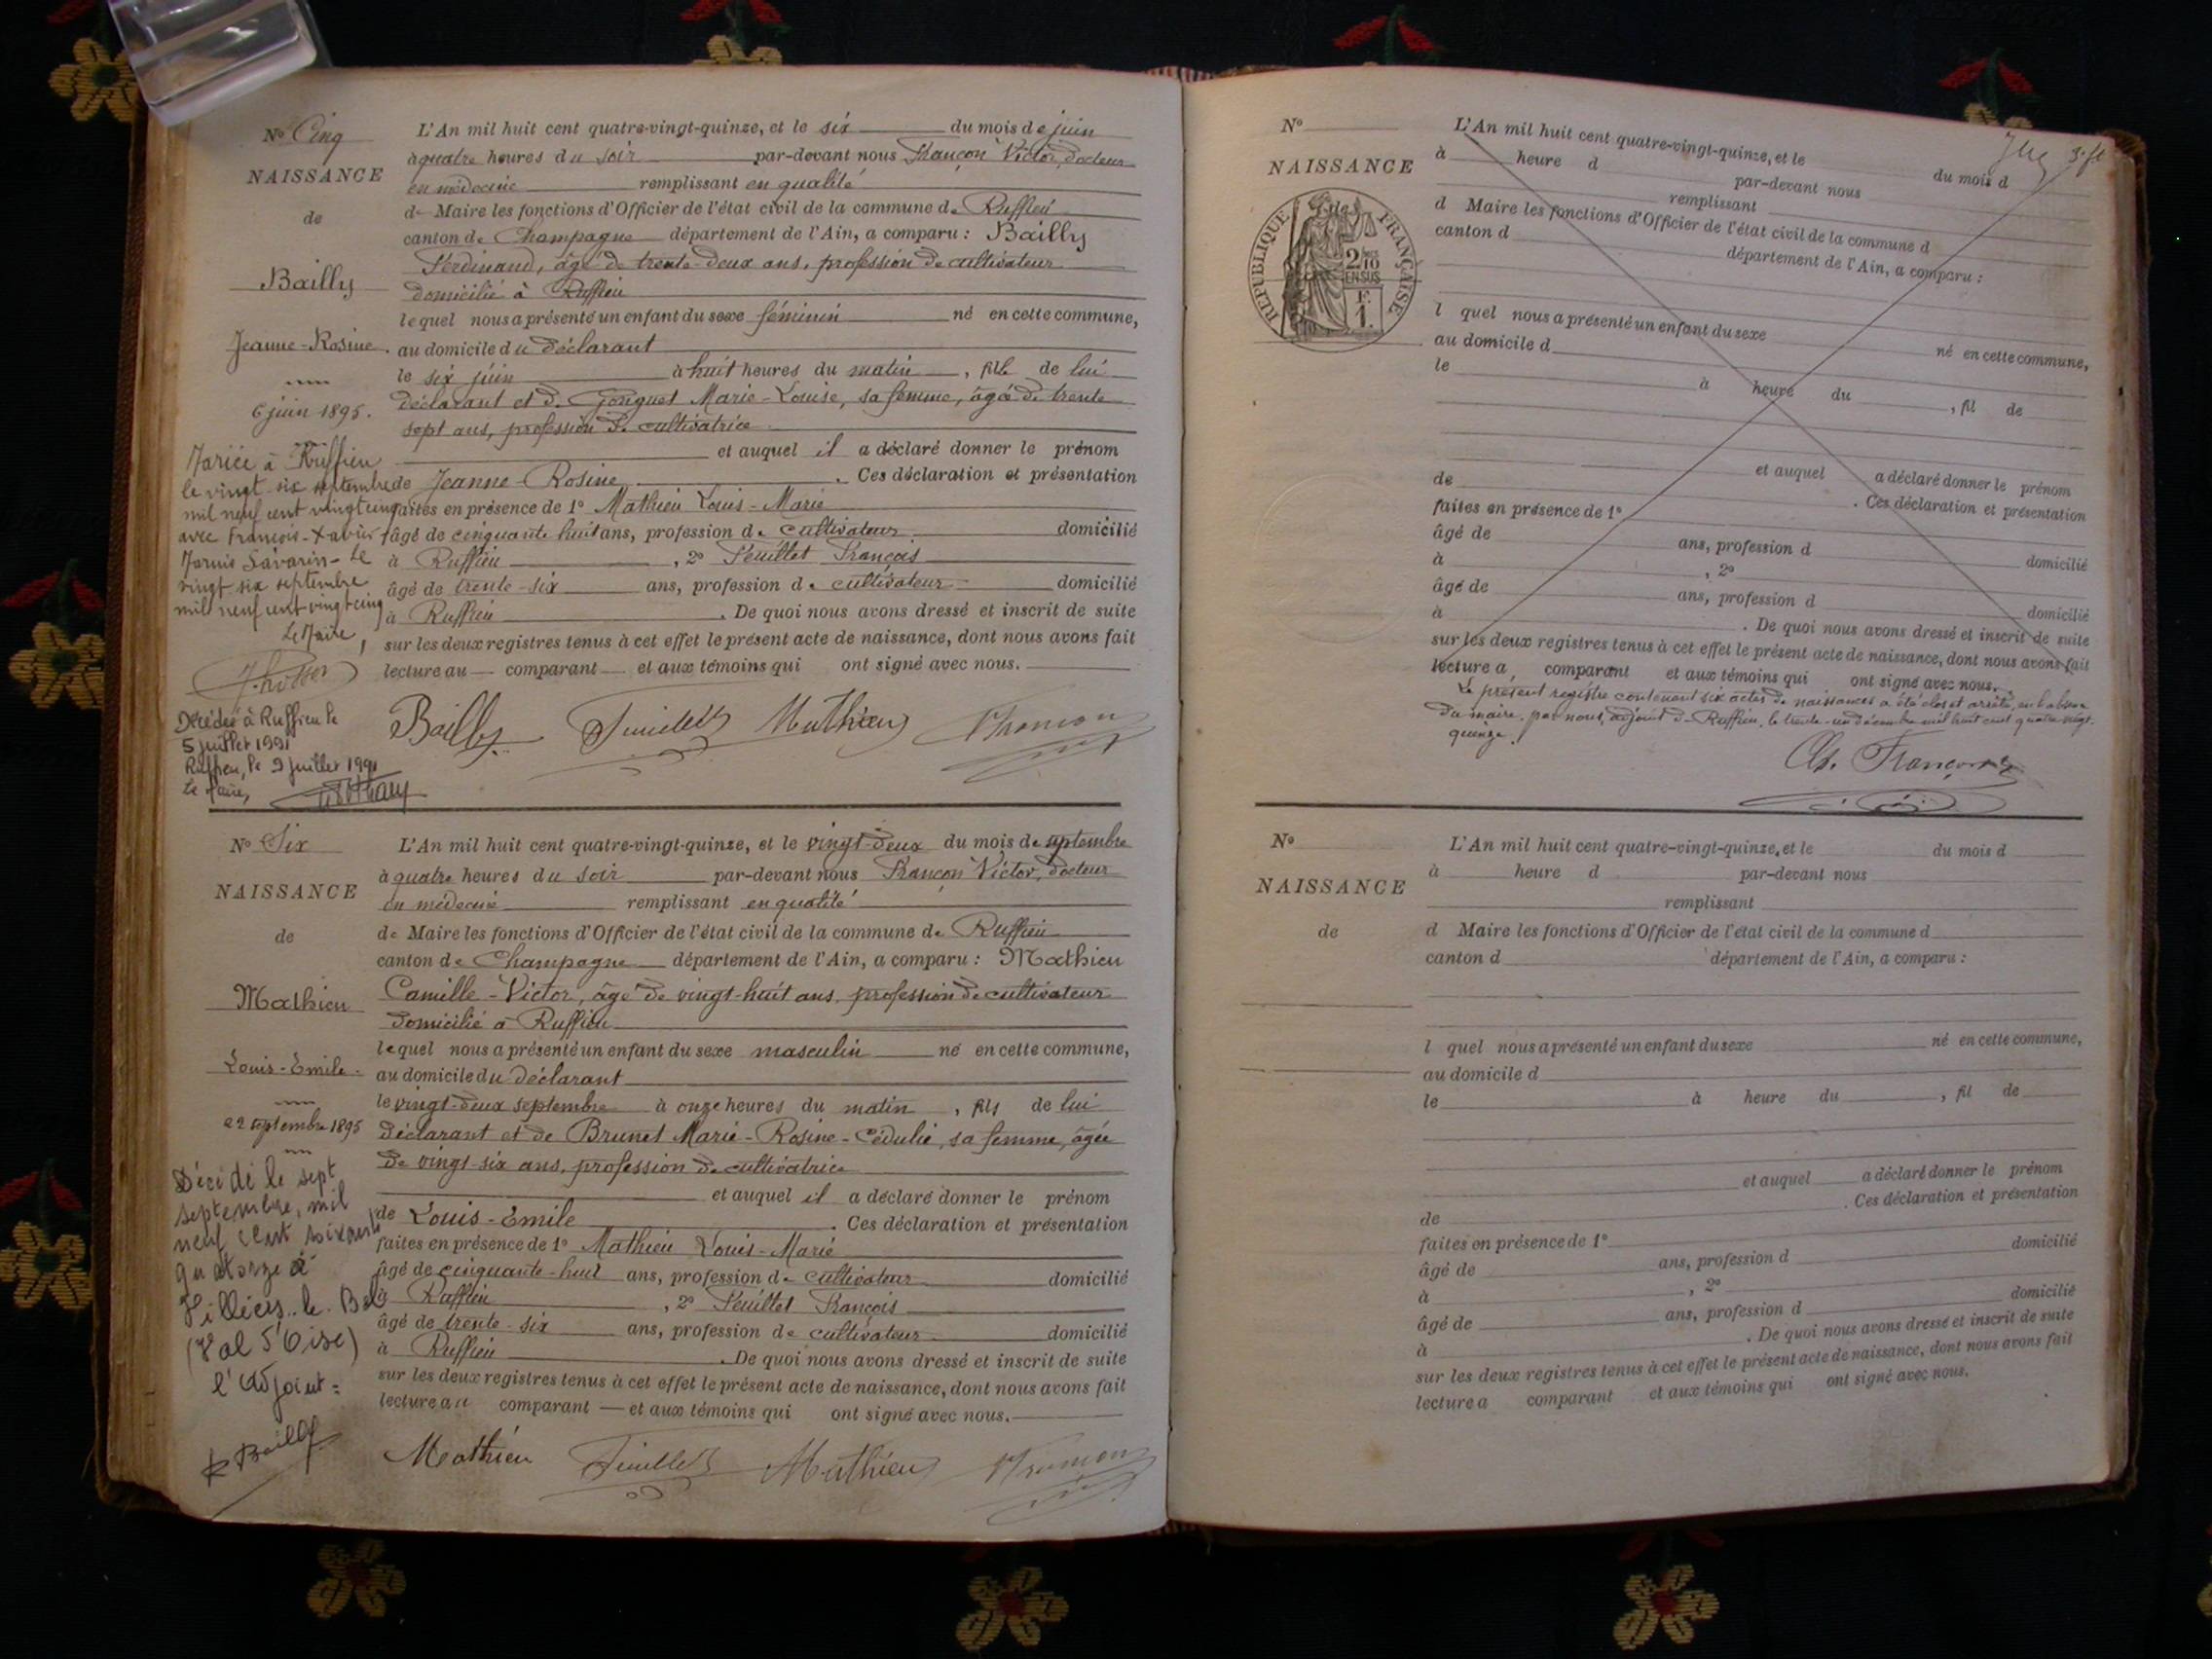 Nº Cinq
NAISSANCE
de
Bailly
Jeanne-Rosine.
6 juin 1895.
Mariée à Ruffieu
le vingt-six septembre
mil neuf cent vingt cinq
avec François-Xavier
Savarin - Le
vingt six septembre
mil neuf cent vingt cinq
Le Maire,
Décédée à Ruffieu le
5 juillet 1991
Ruffieu, le 9 juillet 1991
Le Maire,
L'An mil huit cent quatre-vingt-quinze, et le six du mois de juin
à quatre heures du soir par-devant nous Françon Victor, docteur
en médecine remplissant en qualité
de Maire les fonctions d'Officier de l'état civil de la commune de Ruffieu
canton de Champagne département de l'Ain, a comparu : Bailly
Ferdinand, âgé de trente-deux ans, profession de cultivateur
domicilié à Ruffieu
lequel nous a présenté un enfant du sexe féminin né en cette commune,
au domicile du déclarant
le six juin à huit heures du matin, fille de lui
déclarant et de Gonguet Marie-Louise, sa femme, âgée de trente
sept ans, profession de cultivatrice
et auquel il a déclaré donner le prénom
de Jeanne-Rosine. Ces déclaration et présentation
faites en présence de 1º Mathieu Louis-Marie
âgé de cinquante huit ans, profession de cultivateur domicilié
à Ruffieu, 2º Feuillet François
âgé de trente-six ans, profession de cultivateur domicilié
à Ruffieu. De quoi nous avons dressé et inscrit de suite
sur les deux registres tenus à cet effet le présent acte de naissance, dont nous avons fait
lecture au comparant et aux témoins qui ont signé avec nous.
Bailly Feuillet Mathieu Françon
Nº Six
NAISSANCE
de
Mathieu
Louis-Emile.
22 septembre 1895
Décédé le sept
septembre, mil
neuf cent soixante
quatorze à
Villiers-le-Bel
(Val d'Oise)
l'adjoint :
Bailly
L'An mil huit cent quatre-vingt-quinze, et le vingt-deux du mois de septembre
à quatre heures du soir par-devant nous Françon Victor, docteur
en médecine remplissant en qualité
de Maire les fonctions d'Officier de l'état civil de la commune de Ruffieu
canton de Champagne département de l'Ain, a comparu : Mathieu
Camille-Victor, âgé de vingt-huit ans, profession de cultivateur
domicilié à Ruffieu
lequel nous a présenté un enfant du sexe masculin né en cette commune,
au domicile du déclarant
le vingt-deux septembre à onze heures du matin, fils de lui
déclarant et de Brunet Marie-Rosine-Cédulie, sa femme, âgée
de vingt-six ans, profession de cultivatrice
et auquel il a déclaré donner le prénom
de Louis-Emile. Ces déclaration et présentation
faites en présence de 1º Mathieu Louis-Marie
âgé de cinquante-huit ans, profession de cultivateur domicilié
à Ruffieu, 2º Feuillet François
âgé de trente-six ans, profession de cultivateur domicilié
à Ruffieu. De quoi nous avons dressé et inscrit de suite
sur les deux registres tenus à cet effet le présent acte de naissance, dont nous avons fait
lecture au comparant et aux témoins qui ont signé avec nous.
Mathieu Feuillet Mathieu Françon
Nº
NAISSANCE
de
RÉPUBLIQUE FRANÇAISE
2/10
EN SUS
F.
1.
L'An mil huit cent quatre-vingt-quinze, et le du mois d
à heure d par-devant nous
remplissant
d Maire les fonctions d'Officier de l'état civil de la commune d
canton d département de l'Ain, a comparu :
l quel nous a présenté un enfant du sexe né en cette commune,
au domicile d
le à heure du , fil de
et auquel a déclaré donner le prénom
de . Ces déclaration et présentation
faites en présence de 1º
âgé de ans, profession d domicilié
à , 2º
âgé de ans, profession d domicilié
à . De quoi nous avons dressé et inscrit de suite
sur les deux registres tenus à cet effet le présent acte de naissance, dont nous avons fait
lecture a comparant et aux témoins qui ont signé avec nous.
Le présent registre contenant six actes de naissances a été clos et arrêté, en l'absence
du maire, par nous, adjoint de Ruffieu, le trente-un décembre mil huit cent quatre-vingt-
quinze.
Ch. Françon
Nº
NAISSANCE
de
L'An mil huit cent quatre-vingt-quinze, et le du mois d
à heure d par-devant nous
remplissant
d Maire les fonctions d'Officier de l'état civil de la commune d
canton d département de l'Ain, a comparu :
l quel nous a présenté un enfant du sexe né en cette commune,
au domicile d
le à heure du , fil de
et auquel a déclaré donner le prénom
de . Ces déclaration et présentation
faites en présence de 1º
âgé de ans, profession d domicilié
à , 2º
âgé de ans, profession d domicilié
à . De quoi nous avons dressé et inscrit de suite
sur les deux registres tenus à cet effet le présent acte de naissance, dont nous avons fait
lecture a comparant et aux témoins qui ont signé avec nous.